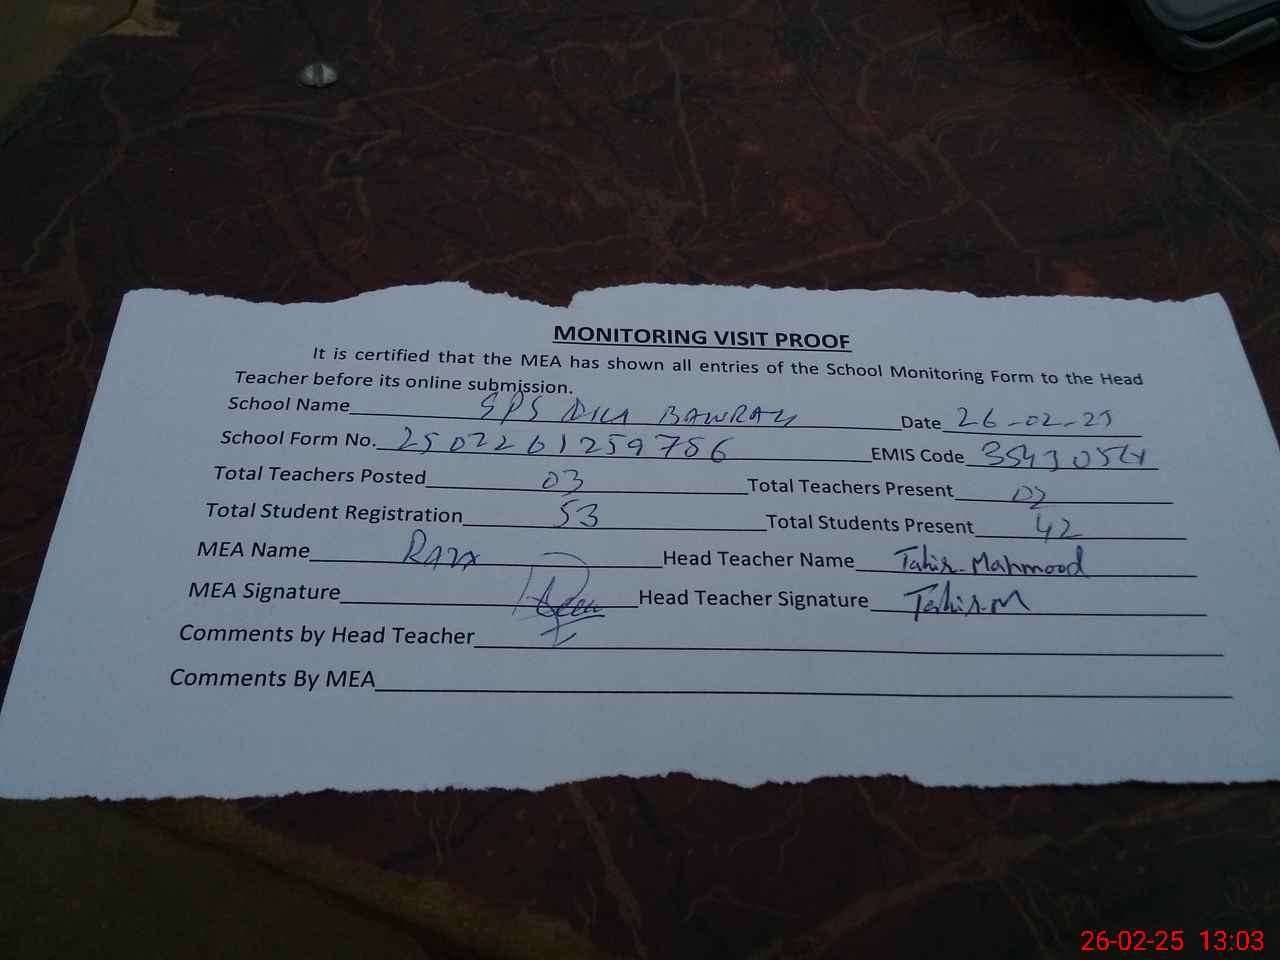 MONITORING VISIT PROOF
It is certified that the MEA has shown all entries of the School Monitoring Form to the Head
Teacher before its online submission.
School Name GPS BAWRAY Date 26-02-25
School Form No. 2502261259786 EMIS Code
Total Teachers Posted 03 Total Teachers Present 02
Total Student Registration 53 Total Students Present 42
MEA Name RAZA Head Teacher Name Tahir Mahmood
MEA Signature Head Teacher Signature Tahir.M
Comments by Head Teacher
Comments By MEA
26-02-25 13:03